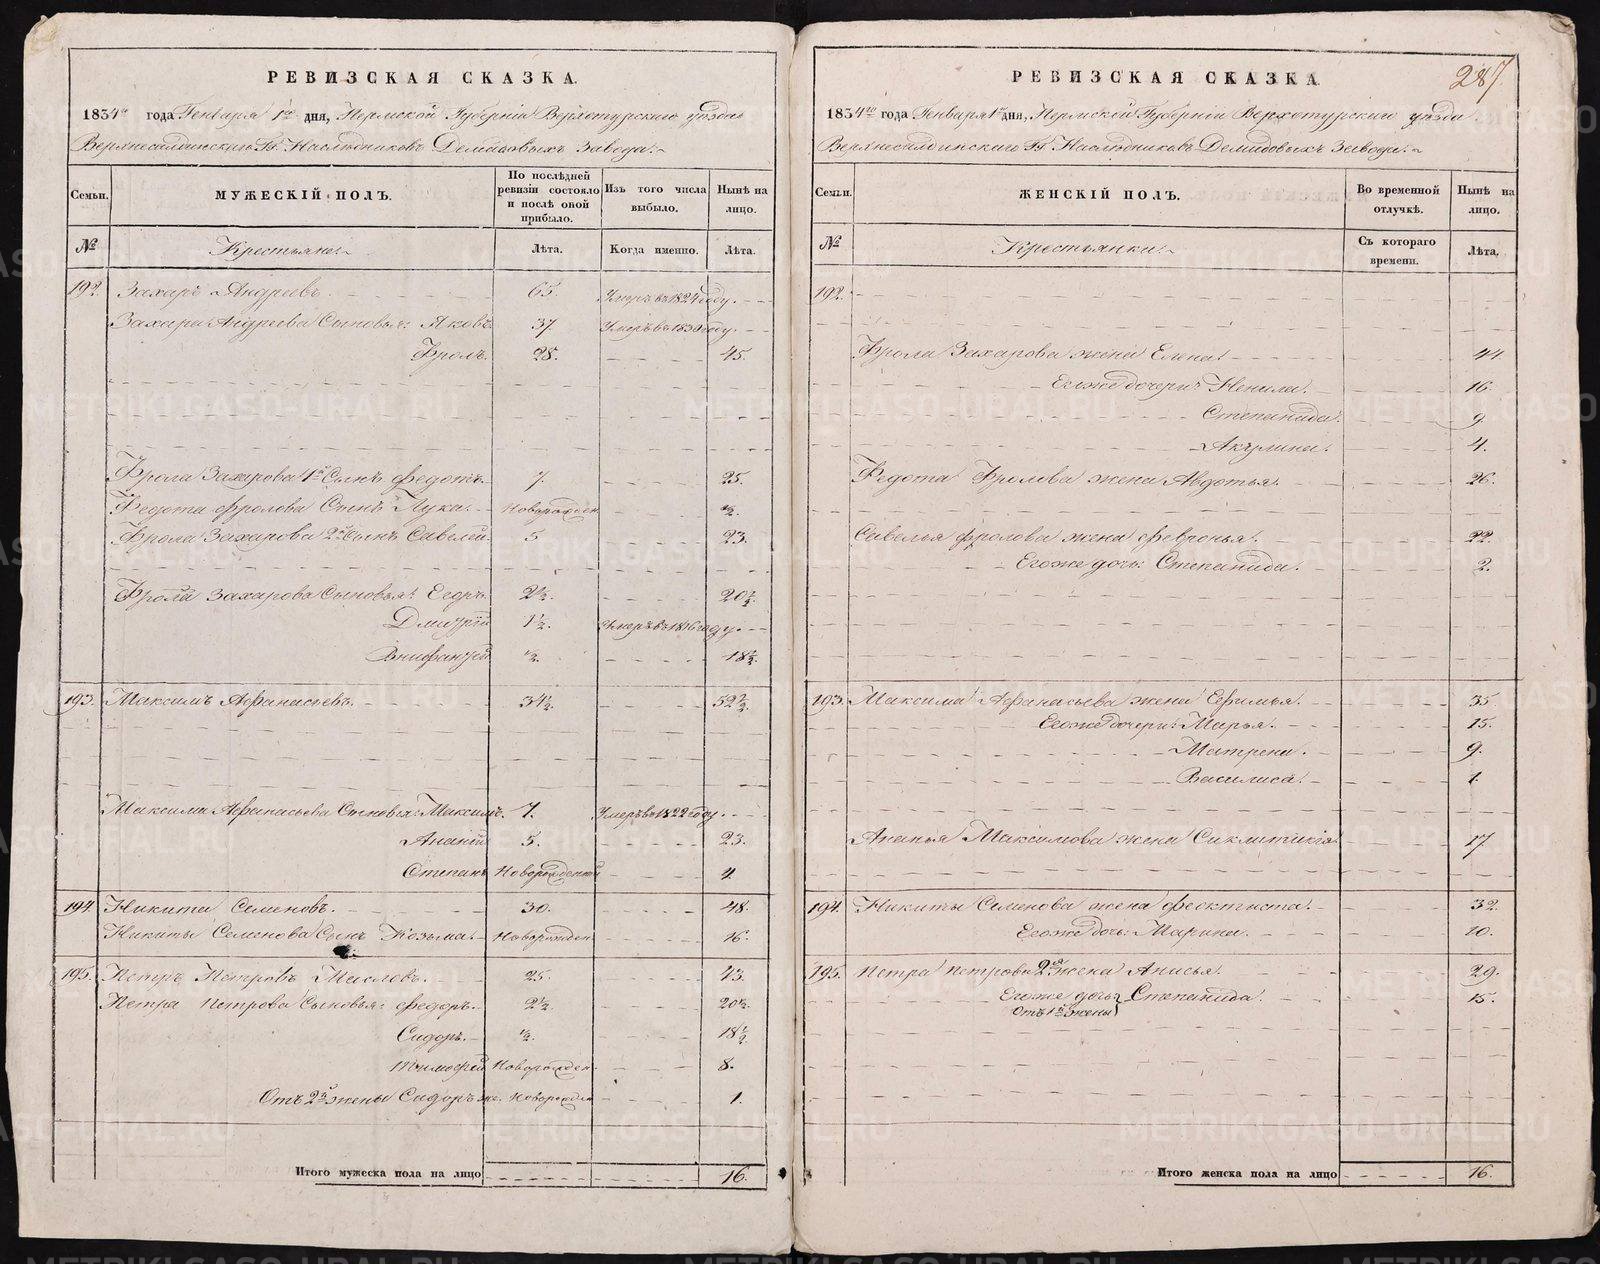 РЕВИЗСКАЯ СКАЗКА.
1834го года Генваря 1го дня, Пермской Губерніи Верхотурскаго уѣзда
Верхнесалдинскаго Гг. Наслѣдниковъ Демидовыхъ Завода.
Семьи.
МУЖЕСКІЙ ПОЛЪ.
По послѣдней ревизіи состояло и послѣ оной прибыло.
Изъ того числа выбыло.
Нынѣ на лицо.
№
Крестьяне:
Лѣта.
Когда именно.
Лѣта.
192. Захаръ Андреевъ. 65. Умеръ въ 1824 году.
Захара Андреева Сыновья: Яковъ. 37. Умеръ въ 1830 году.
Фролъ. 28. 45.
Фрола Захарова 1й Сынъ Федотъ. 7. 25.
Федота Фролова Сынъ Лука. Новорожден. ½.
Фрола Захарова 2й Сынъ Савелей. 5. 23.
Фрола Захарова Сыновья: Егоръ. 2½. 20½.
Дмитрій 1½. Умеръ въ 1816 году.
Внифантій ½. 18½.
193. Максимъ Афанасьевъ. 34½. 52½.
Максима Афанасьева Сыновья: Максимъ. 7. Умеръ въ 1822 году.
Ананій 5. 23.
Степанъ Новорожденный 4.
194. Никита Семеновъ. 30. 48.
Никиты Семенова Сынъ Козьма. Новорожден. 16.
195. Петръ Петровъ Масловъ. 25. 43.
Петра Петрова Сыновья: Федоръ. 2½. 20½.
Сидоръ. ½. 18½.
Тимофей Новорожден. 8.
Отъ 2й жены Сидоръ же. Новорожден 1.
Итого мужеска пола на лицо 16.
287.
РЕВИЗСКАЯ СКАЗКА
1834го года Генваря 1го дня, Пермской Губерніи Верхотурскаго уѣзда
Верхнесалдинскаго Гг. Наслѣдниковъ Демидовыхъ Завода.
Семьи.
ЖЕНСКІЙ ПОЛЪ.
Во временной отлучкѣ.
Нынѣ на лицо.
№
Крестьянки:
Съ котораго времени.
Лѣта.
192.
Фрола Захарова жена Елена. 44.
Его же дочери: Ненила. 16.
Степанида. 9.
Акулина. 4.
Федота Фролова жена Авдотья. 26.
Савелья Фролова жена Февронья. 22.
Его же дочь: Степанида. 2.
193. Максима Афанасьева жена Ефимья. 35.
Его же дочери: Марья. 15.
Матрена. 9.
Василиса. 1.
Ананья Максимова жена Сиклитикія 17.
194. Никиты Семенова жена Феоктиста. 32.
Его же дочь: Марина. 10.
195. Петра Петрова 2я жена Анисья. 29.
Его же дочь Степанида. 15.
Отъ 1й жены
Итого женска пола на лицо 16.
METRIKI.GASO-URAL.RU